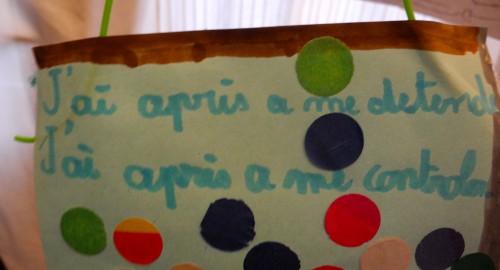 J'ai apris a me detend
J'ai apris a me control